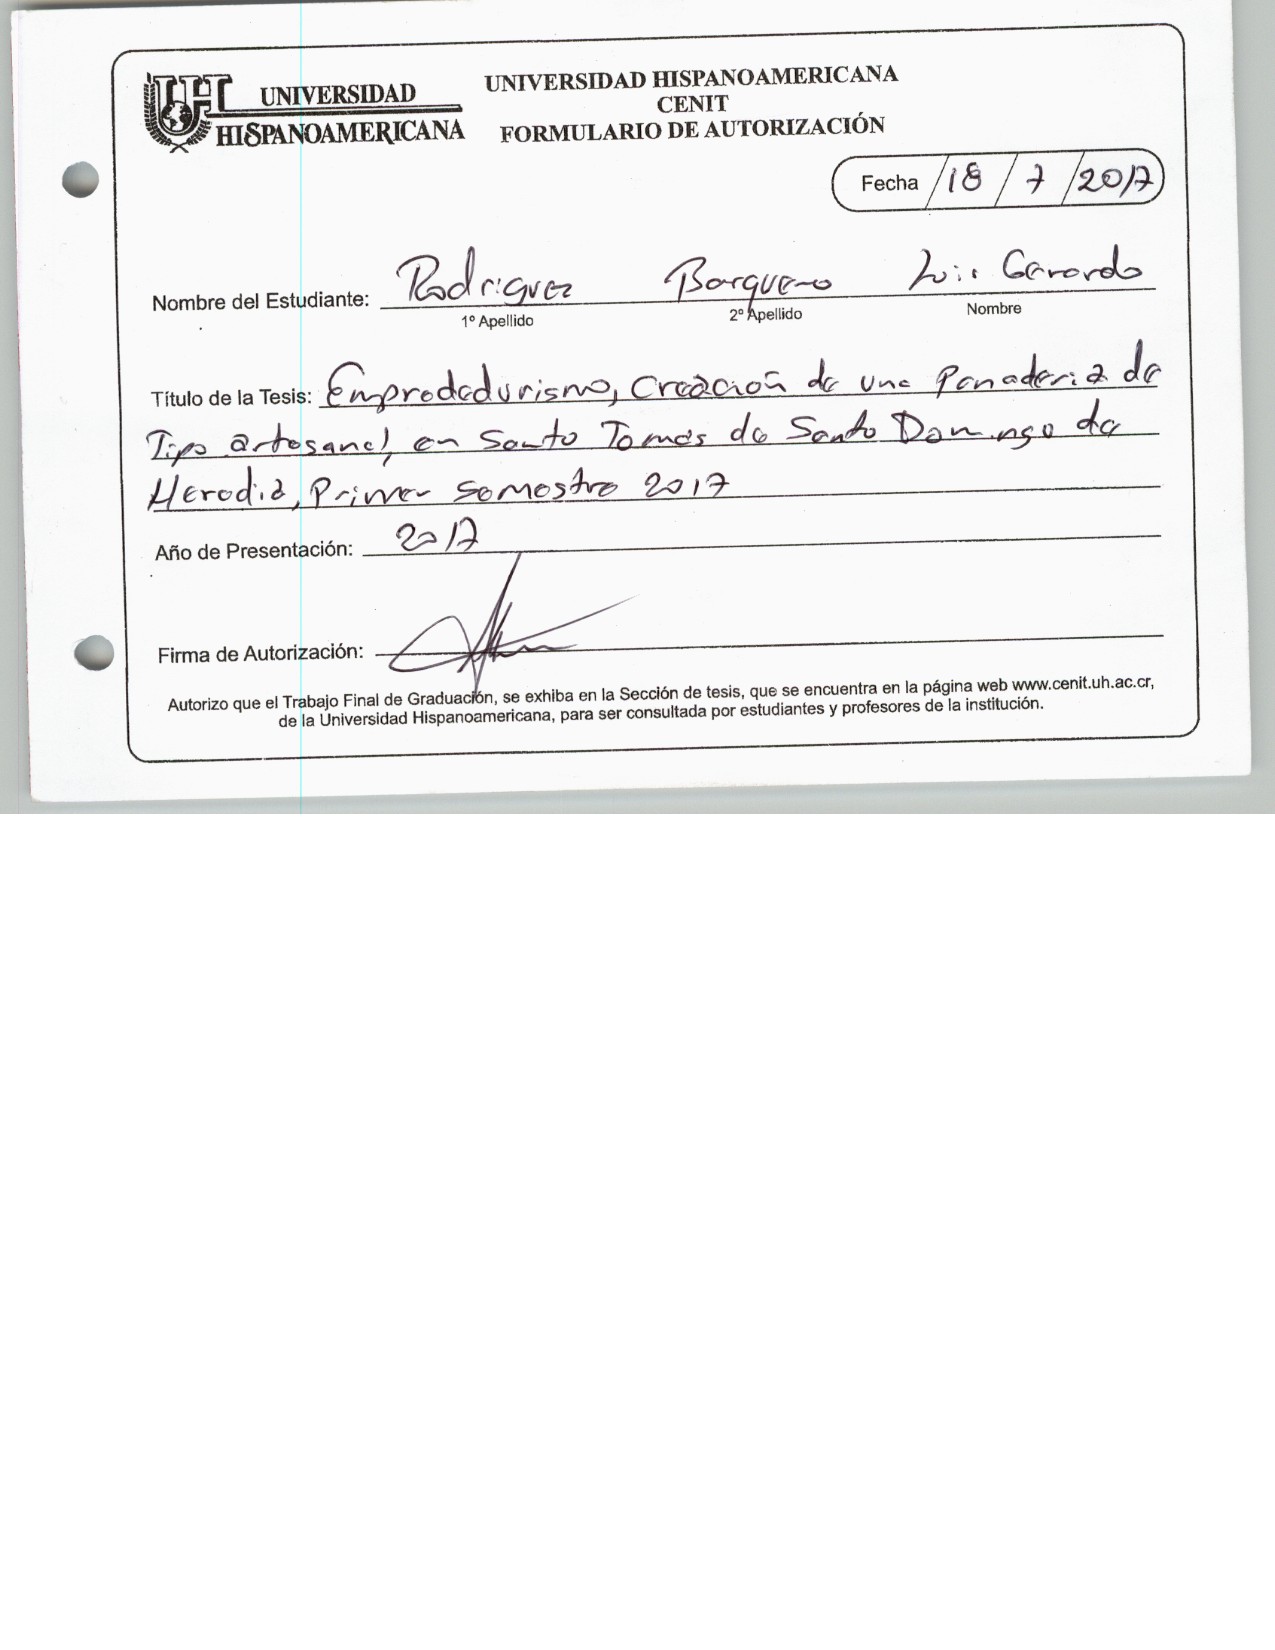 UNIVERSIDAD
HISPANOAMERICANA
UNIVERSIDAD HISPANOAMERICANA
CENIT
FORMULARIO DE AUTORIZACIÓN
Fecha / 18 / 7 / 2017
Nombre del Estudiante: Rodriguez Barquero Luis Gerardo
1º Apellido 2º Apellido Nombre
Título de la Tesis: Empredadurismo, Creación de una Panaderia de
Tipo artesanal, en Santo Tomás de Santo Domingo de
Heredia, Primer semestre 2017
Año de Presentación: 2017
Firma de Autorización:
Autorizo que el Trabajo Final de Graduación, se exhiba en la Sección de tesis, que se encuentra en la página web www.cenit.uh.ac.cr,
de la Universidad Hispanoamericana, para ser consultada por estudiantes y profesores de la institución.